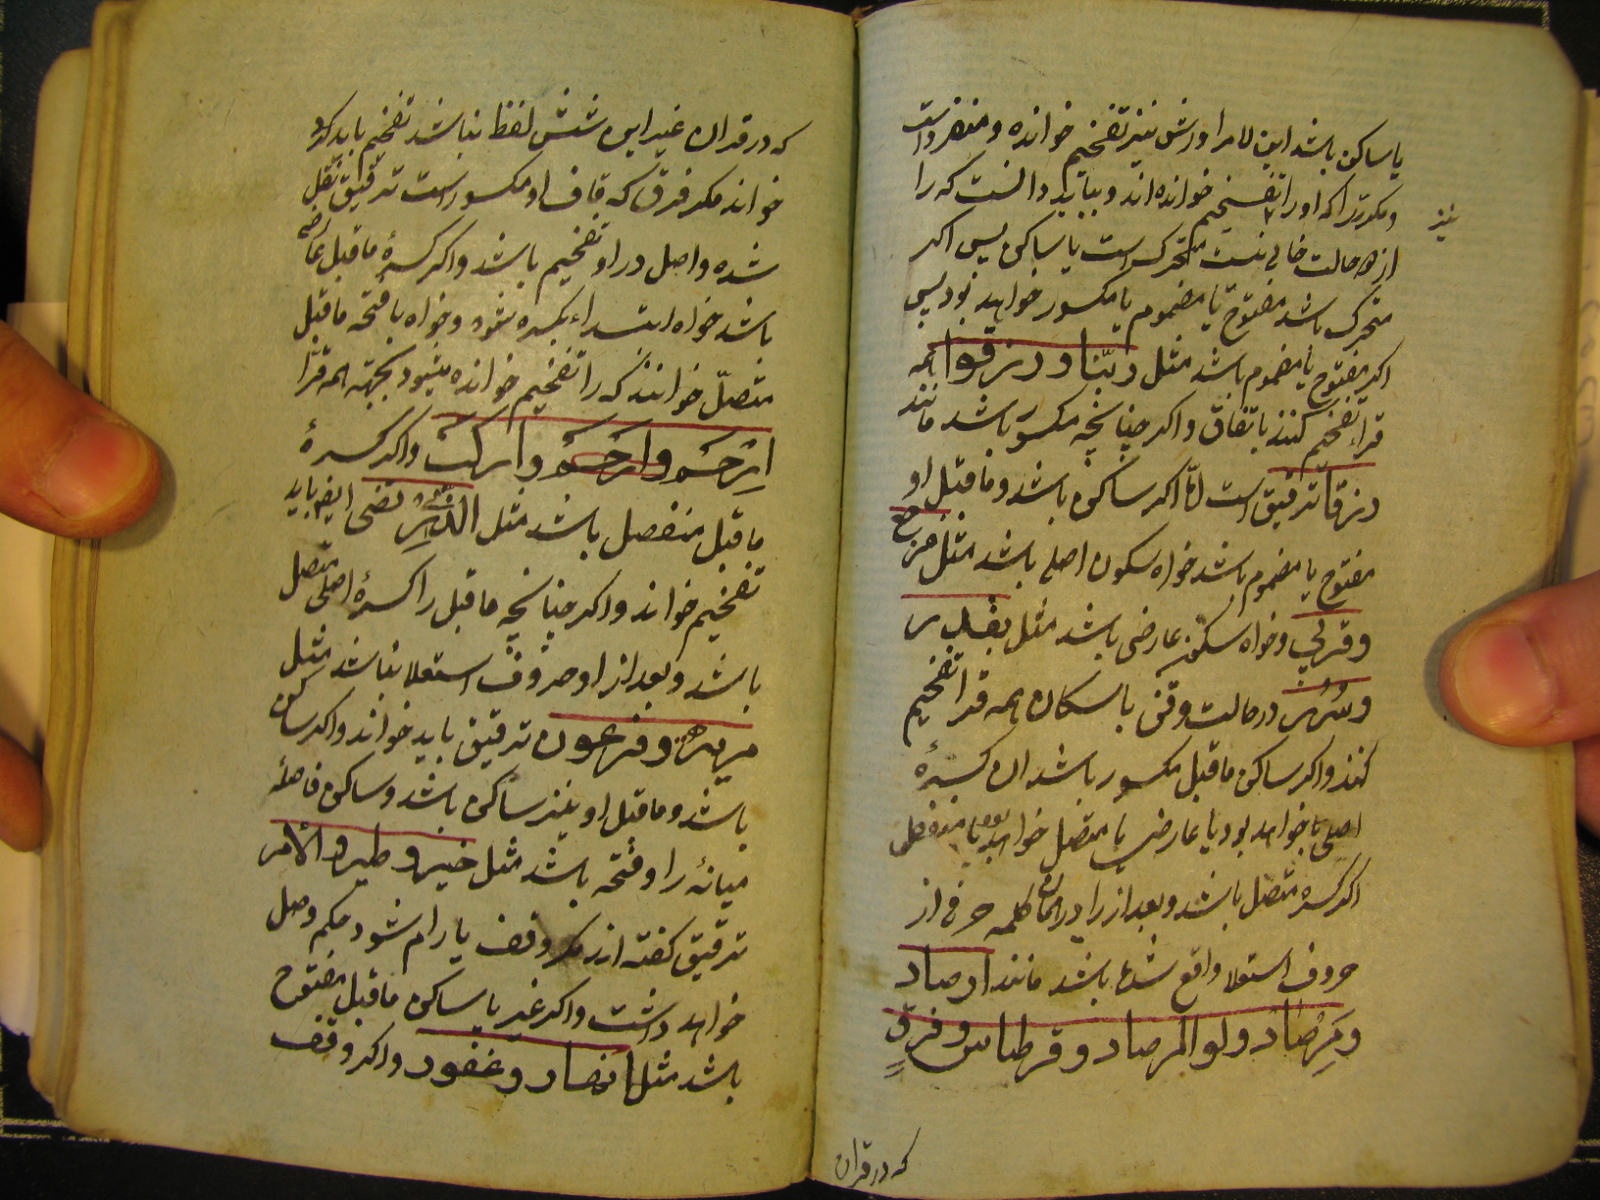 یا ساکن باشد این لام را ورش نیز تفخیم خوانده و منفرد است
و مکرر را که او را تفخیم خوانده اند و بباید دانست که را
نیز
از دو حالت خالی نیست متحرک است یا ساکن پس اکر
متحرک باشد مفتوح یا مضموم یا مکسور خواهد بود پس
اکر مفتوح یا مضموم باشد مثل ربّنا و رزقوا همه
قراء تفخیم کنند باتفاق و اکر چنانچه مکسور باشد مانند
رزقا ترقیق است امّا اکر ساکن باشد و ماقبل او
مفتوح یا مضموم باشد خواه سکون اصلی باشد مثل
و قربی و خواه سکون عارضی باشد مثل
و سُرُر در حالت وقف با سکان همه قرا تفخیم
کنند و اکر ساکن ماقبل مکسور باشد ان کسرهٔ
اصلی یا خواهد بود یا عارضی یا متصل خواهد بود یا منفصل
اکر کسره متصل باشد و بعد از را در همان کلمه حرفی از
حروف استعلا واقع شده باشد مانند ارصاد
و مِرصاد و لبالمرصاد و قرطاس و فرقٍ
که در قران
که در قران غیر این شش لفظ نباشد تفخیم باید کرد
خواند مکر فرق که قاف او مکسور است ترقیق نقل
شده و اصل در او تفخیم باشد و اکر کسرهٔ ماقبل عارضی
باشد خواه ابتداء بکسره شود و خواه با فتحه ماقبل
متصلّ خوانند که را تفخیم خوانده میشود بجهة همه قرّا
اِرْحَمُو وارحَمُو و ارکبُ و اکر کسرهٔ
ماقبل منفصل باشد مثل الّذی ارتضی ایضا باید
تفخیم خواند و اکر چنانچه ماقبل را کسرهٔ اصلی متصل
باشد و بعد از او حروف استعلا نباشد مثل
مریه و فرعون ترقیق باید خواند و اکر ساکن
باشد و ماقبل او نیز ساکن باشد و ساکن فاصله
میانهٔ را و فتحه باشد مثل خیر و طیر و الأمر
ترقیق کفته اند مکر وقف یا رام شود حکم وصل
خواهد داشت و اکر غیر یا ساکن ماقبل مفتوح
باشد مثل انصار و غفور و اکر وقف